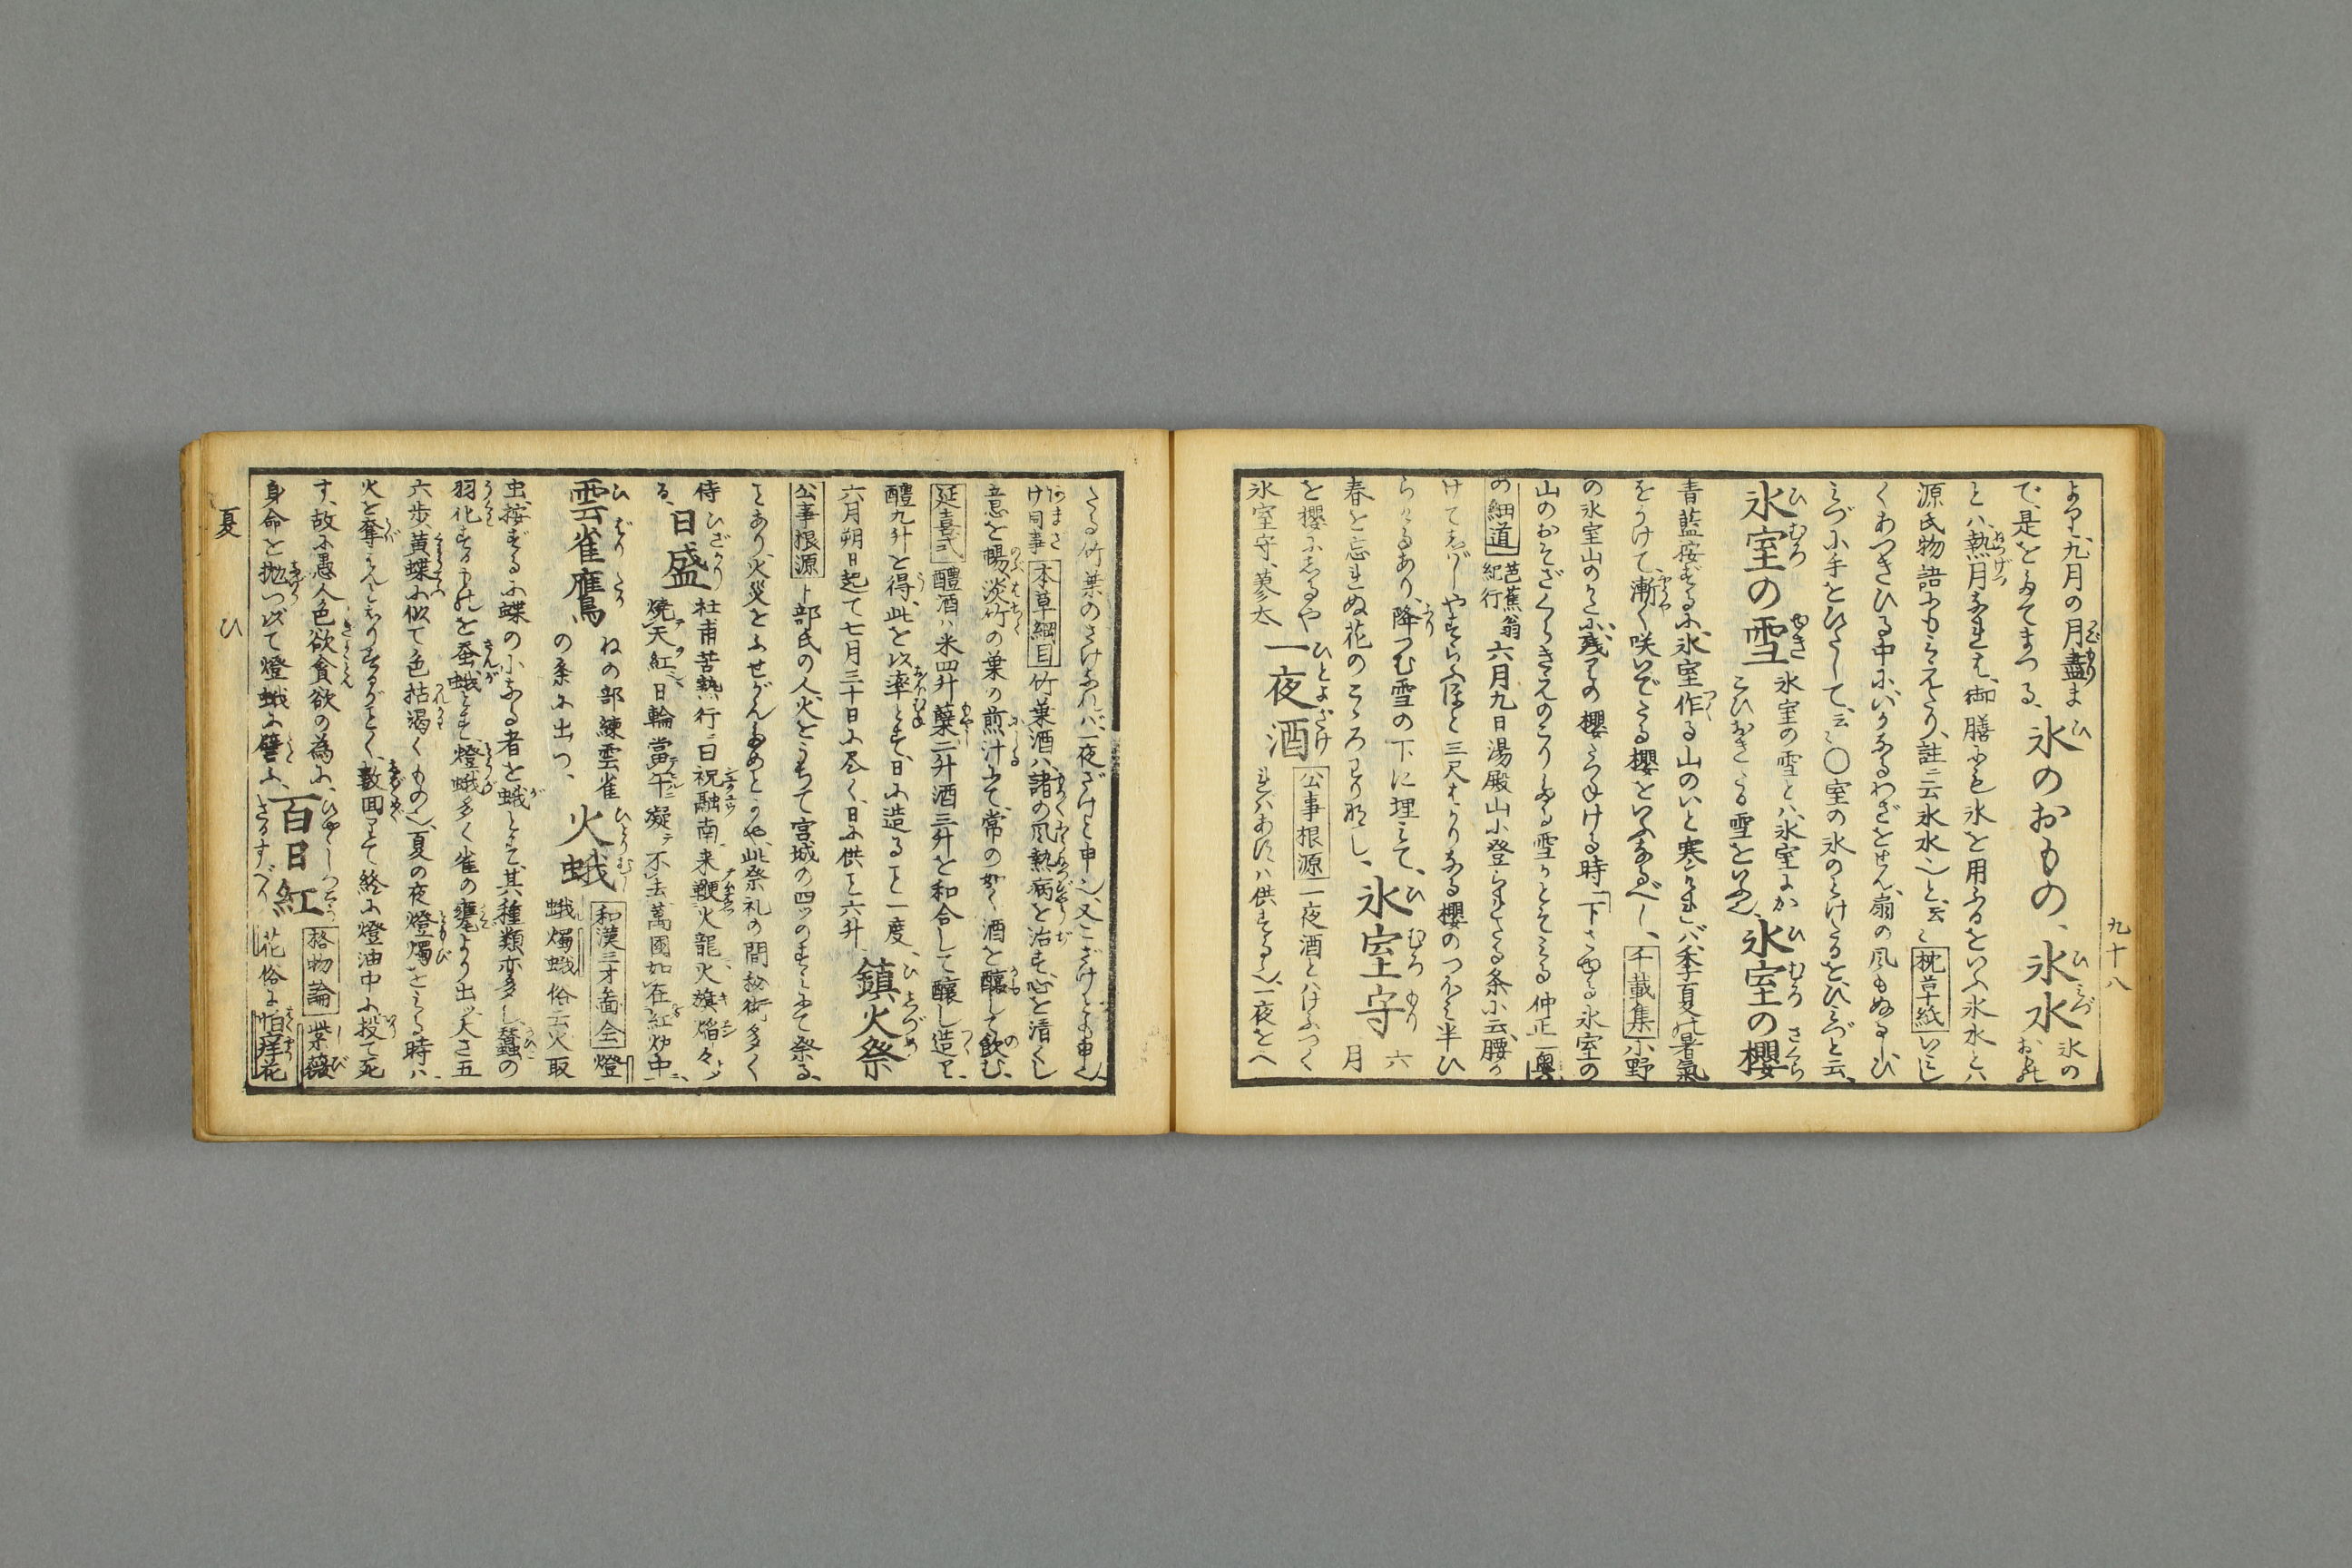 九十八
より、九月の月盡ま
で、是をたてまつる、氷のおもの、氷水 氷の おもの
とハ、熱月なれば、御膳にも氷を用ふるをいふ氷水とハ
源氏物語にもみえたり、註ニ云氷水也と、云〻枕草紙いミし
くあつきひる中に、いかなるわざをせん、扇の風もぬるしひ
みづに手をひたして、云〻〇室の氷のとけたるを、ひみづと云、
氷室の雪 氷室の雪とハ、氷室にか
こひおきたる雪をいふ也、氷室の櫻
青藍按ずるに、氷室作る山のいと寒ければ季夏の暑氣
をうけて、漸〻咲いでたる櫻をいふなるべし、千載集小野
の氷室山のかたに、残りの櫻ミつねける時「下さゆる氷室の
山のおそざくらきえのこりたる雪かとそミる 仲正 奥
の細道 芭蕉翁紀行 六月九日湯殿山に登られたる条に云、腰か
けてしばしやすらふほと三尺ばかりなる櫻のつぼミ半ひ
らけるあり、降つむ雪の下に埋ミて、
春を忘れぬ花のこゝろわりなし、氷室守 六月
を櫻にしるや
氷室守、蓼太 一夜酒 公事根源一夜酒とハけふつく
れハあすハ供する也、一夜をへ
たる竹葉のさけなれバ、一夜ざけと申也、又こざけとも申也、
あまさけ同事 本草綱目 竹葉酒ハ、諸の風熱病を治す、心を清くし
意を暢、淡竹の葉の煎汁にて、常の如く酒を醸して飲む、
延喜式 醴酒ハ米四升蘖二升酒三升を和合して醸し造り、
醴九升を得、此を以率とす、日に造ること一度、
六月朔日起て七月三十日に尽く、日に供こと六升、鎮火祭
公事根源 卜部氏の人火をうちて宮城の四ッのすミにて祭る、
とあり、火災をふせがんためとかや、此祭礼の間於術多く
侍る、日盛 杜甫苦熱行ニ曰祝融南来鞭火龍火旗焔々
焼天紅日輪當午凝不去萬國如在紅炉中
雲雀鷹 ねの部練雲雀
の条に出つ、火蛾 和漢三才圖會 燈
蛾燭蛾俗云火取
虫、按ずるに蝶の小なる者を蛾とす、其種類亦多し、蠶の
羽化するものを蚕蛾とす、燈蛾多く雀の甕より出ッ、大さ五
六歩黄蝶に似て色枯渇くもの也、夏の夜燈燭をミる時ハ、
火を奪ハんとおりするがごとく、數回りて、終に燈油中に投て死
す、故に愚人色欲貪欲の為に、
身命を拋つ以て燈蛾に譬ふ、百日紅 格物論 紫薇
花俗に怕痒花
夏 ひ